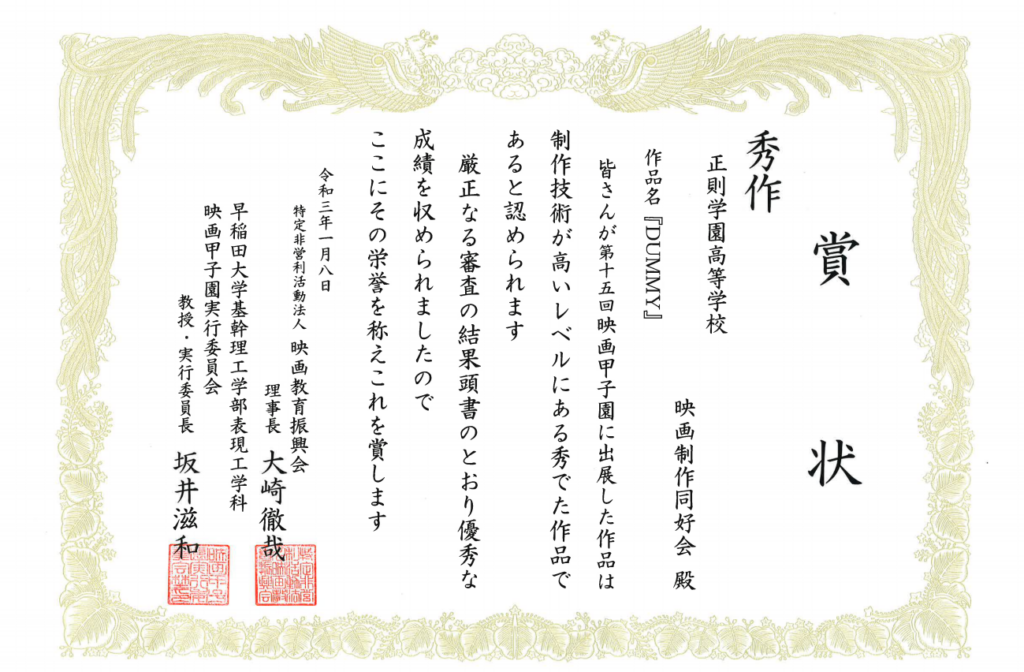 賞状
秀作
正則学園高等学校
映画制作同好会 殿
作品名『DUMMY』
皆さんが第十五回映画甲子園に出展した作品は
制作技術が高いレベルにある秀でた作品で
あると認められます
厳正なる審査の結果頭書のとおり優秀な
成績を収められましたので
ここにその栄誉を称えこれを賞します
令和三年一月八日
特定非営利活動法人 映画教育振興会
理事長 大崎徹哉
早稲田大学基幹理工学部表現工学科
映画甲子園実行委員会
教授・実行委員長 坂井滋和